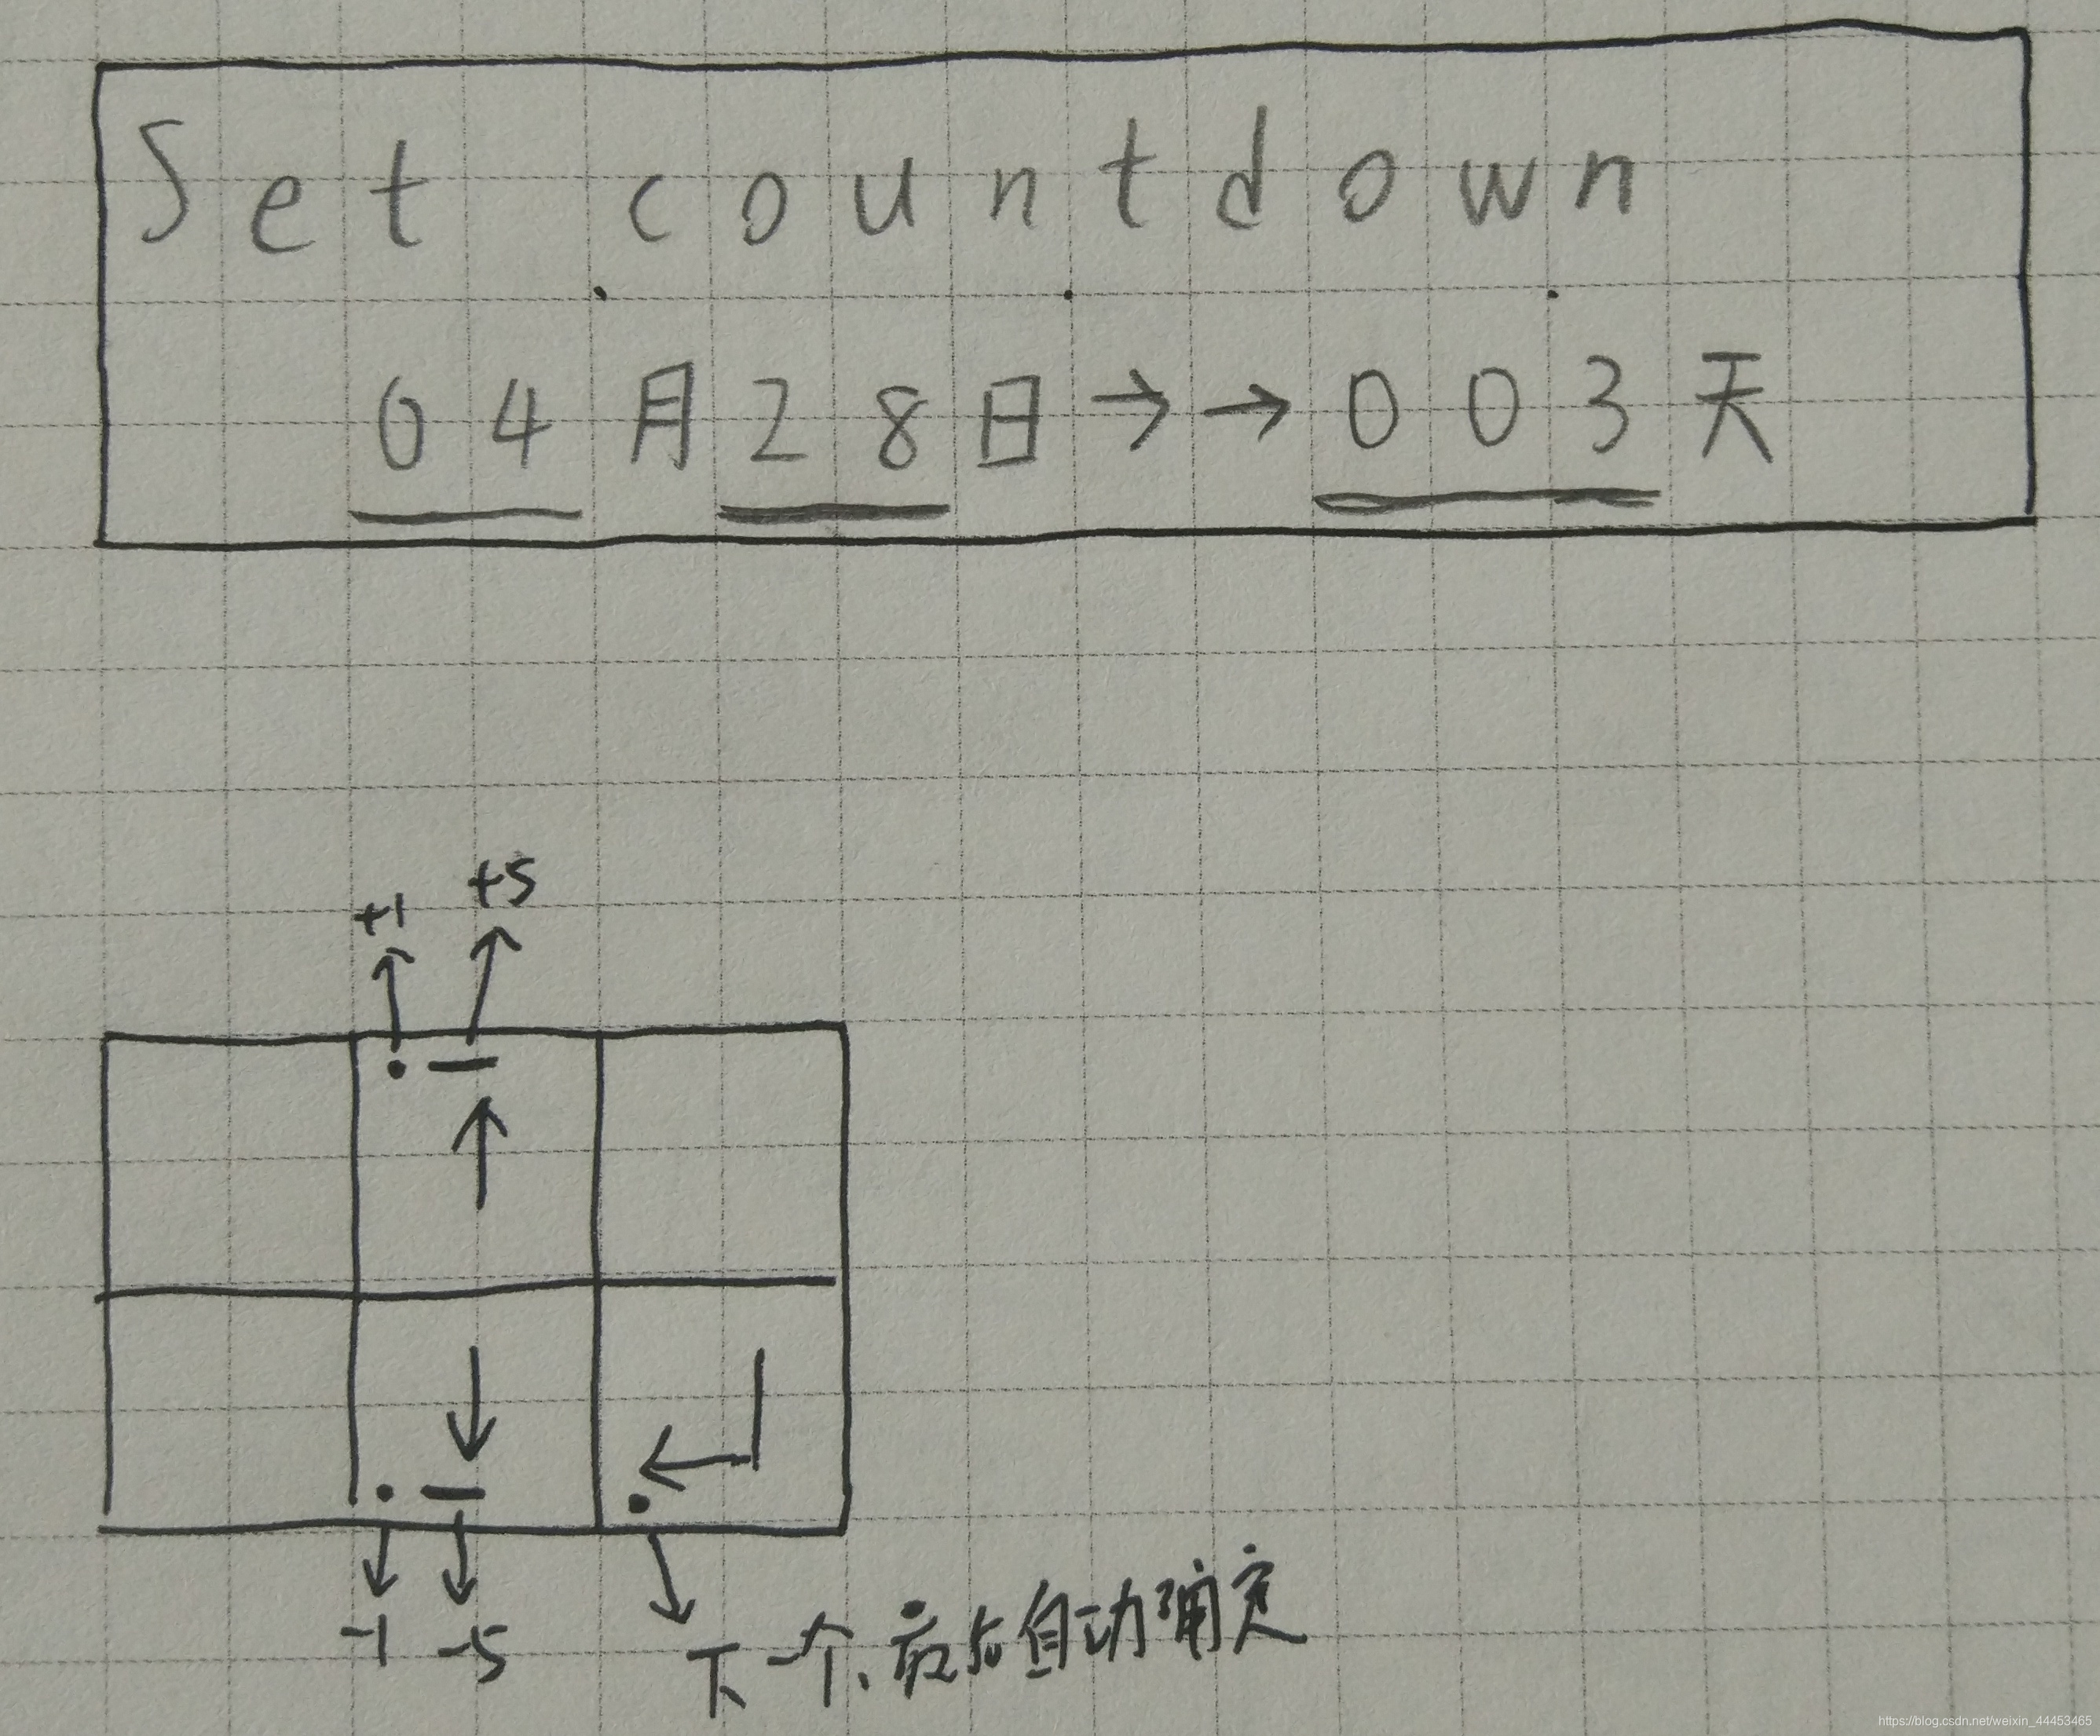 Set countdown
04月28日→→003天
+1 +5
↑
↓
-1 -5
下一个、最后自动确定
https://blog.csdn.net/weixin_44453465